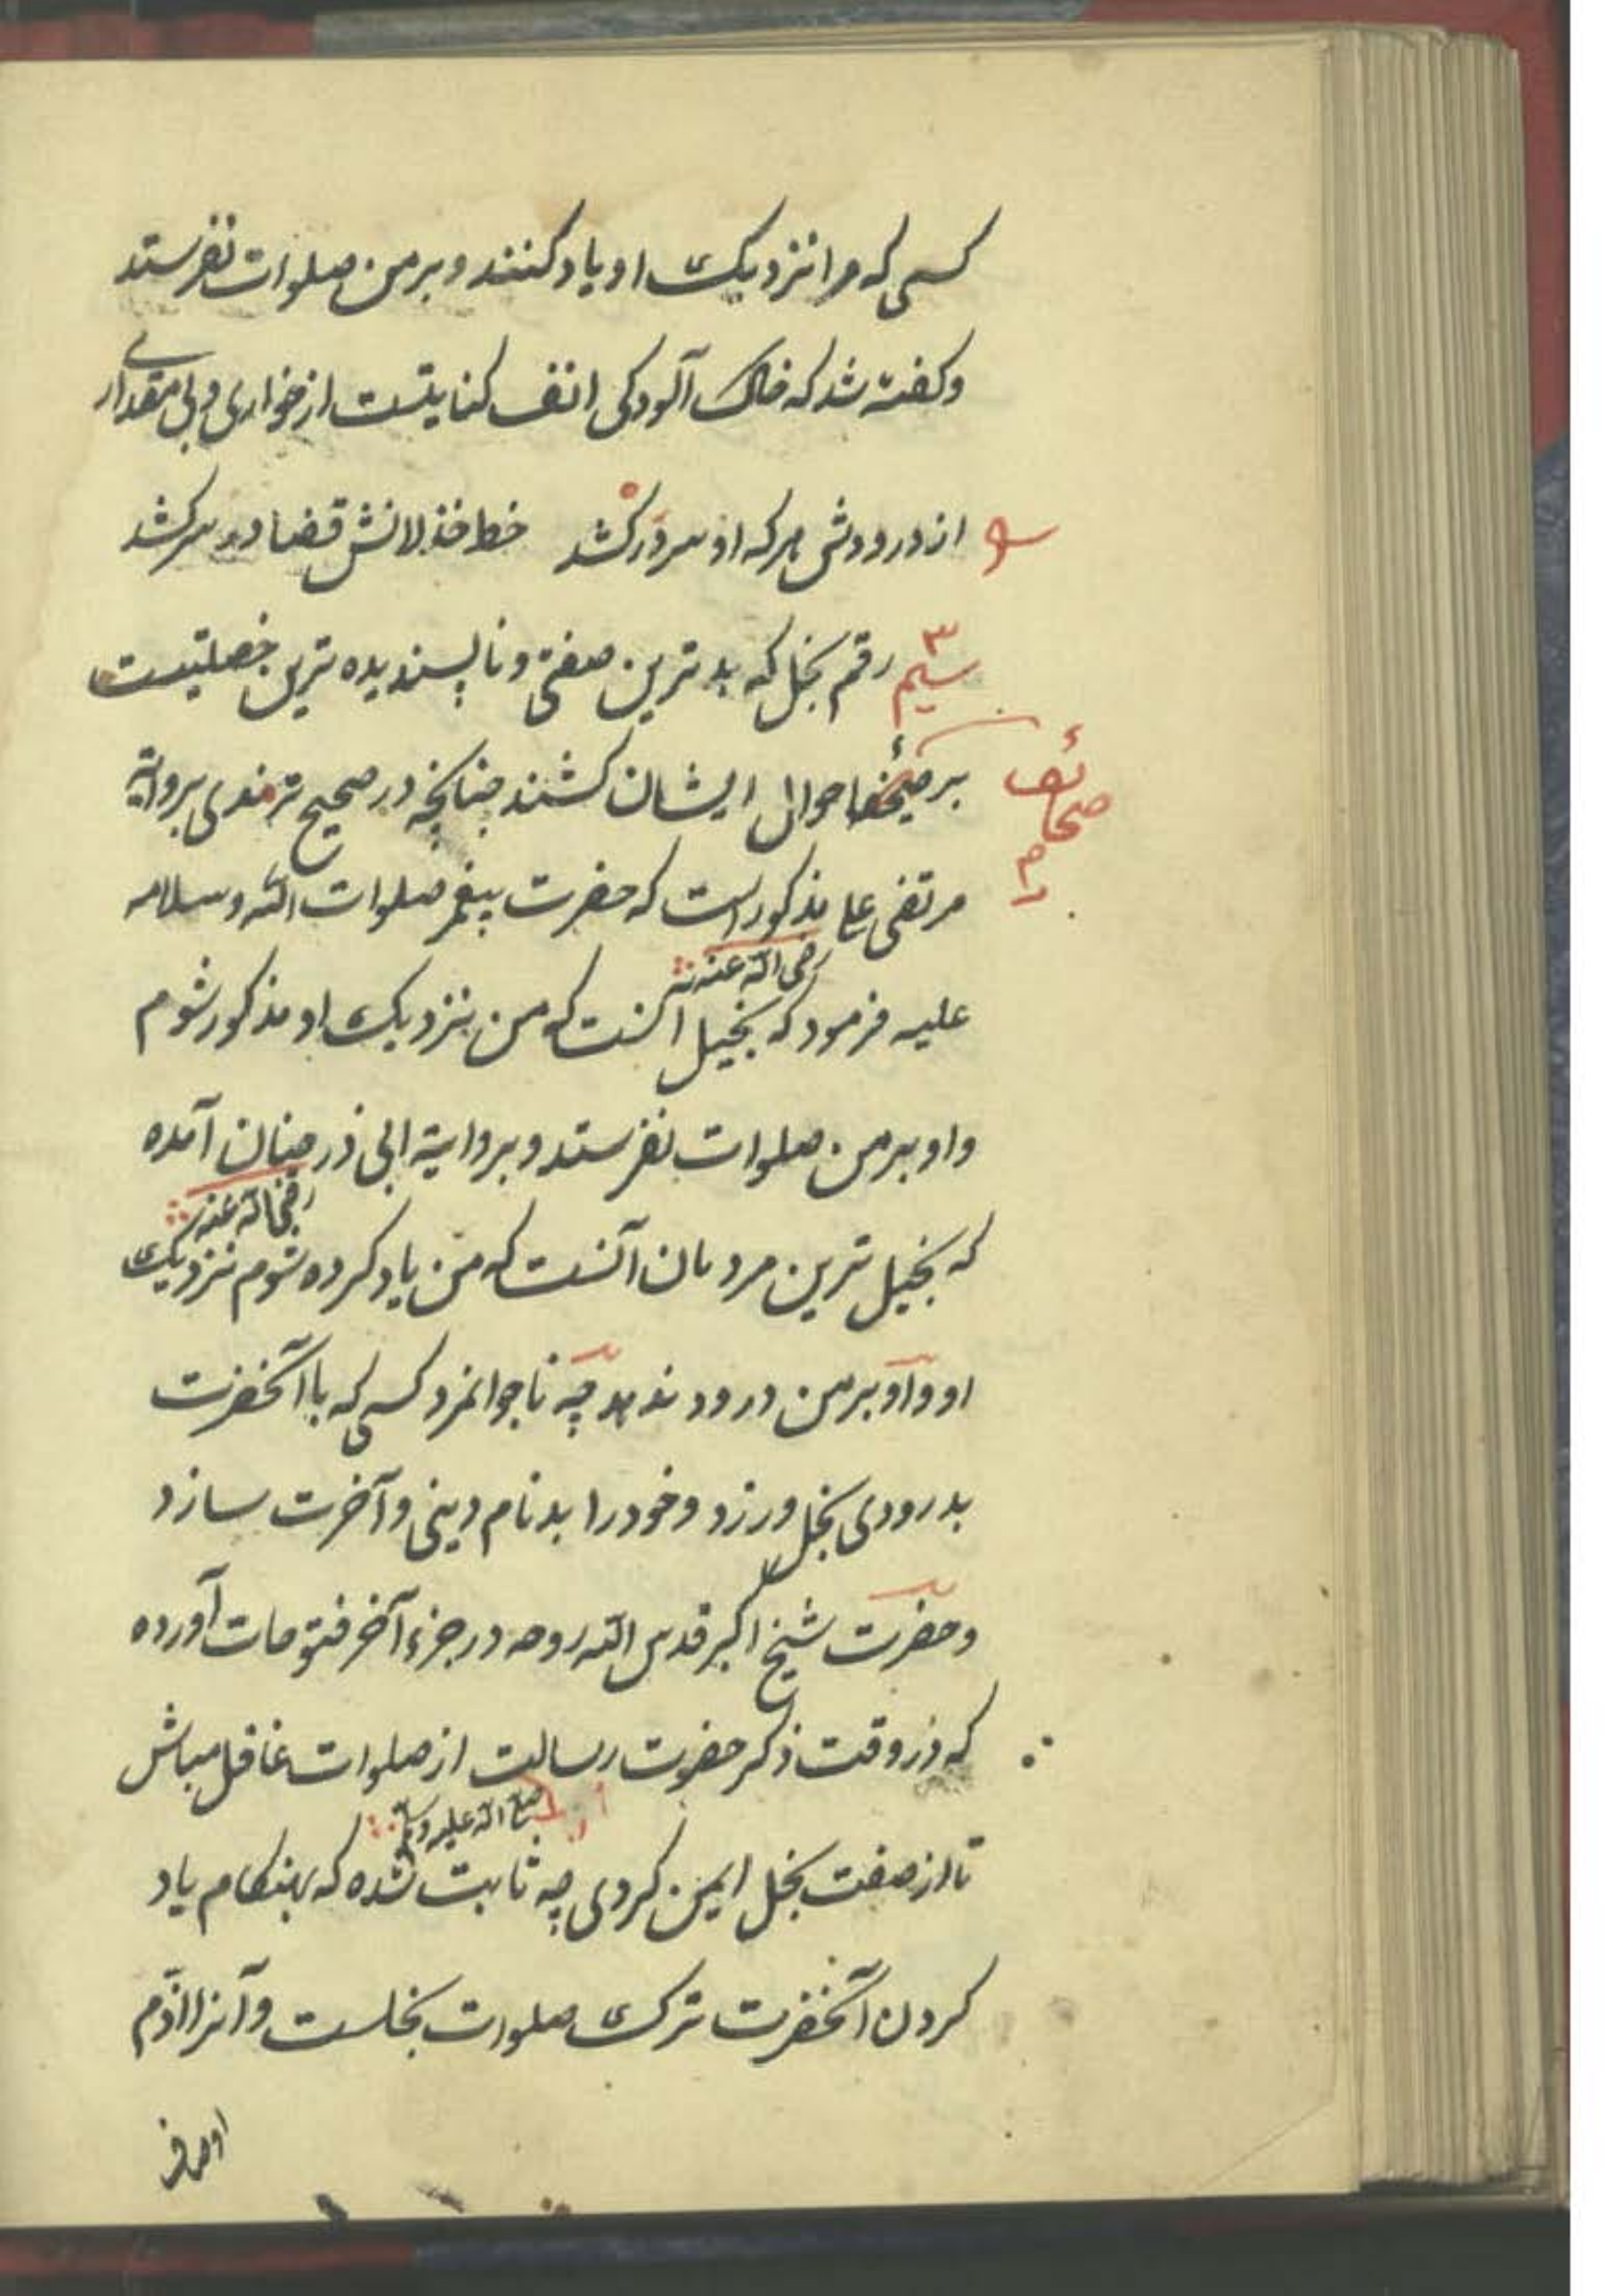 کسی که مرا نزدیک او یاد کنند و بر من صلوات نفرستد
و کفته شد که خاک آلودکی انف کنایتست از خواری و بی مقداری
از درودش هرکه او سر درکشد خط خذلانش قضا در سر کشد
سیم ۳ رقم بخل که بدترین صفتی و ناپسندیده ترین خصلتیست
بر صحیفهٔ احوال ایشان کشند چنانچه در صحیح ترمذی بروایة
صحائف
مرتضی علی مذکور است که حضرت پیغمبر صلوات الله و سلامه
رضی الله عنه
علیه فرمود که بخیل آنست که من بنزدیک او مذکور شوم
و او بر من صلوات نفرستد و بروایة ابی ذر چنان آمده
رضی الله عنه
که بخیل ترین مردمان آنست که من یاد کرده شوم نزدیک
او و او بر من درود ندهد چه ناجوانمرد کسی که با آنحضرت
بدرودی بخل ورزد و خود را بدنام دینی و آخرت سازد
و حضرت شیخ اکبر قدس الله روحه در جزء آخر فتوحات آورده
که در وقت ذکر حضرت رسالت از صلوات غافل مباش
صلی الله علیه وسلم
تا از صفت بخل ایمن کردی چه ثابت شده که بهنکام یاد
کردن آنحضرت ترک صلوات بخلست و آنرا اذم
اوصاف